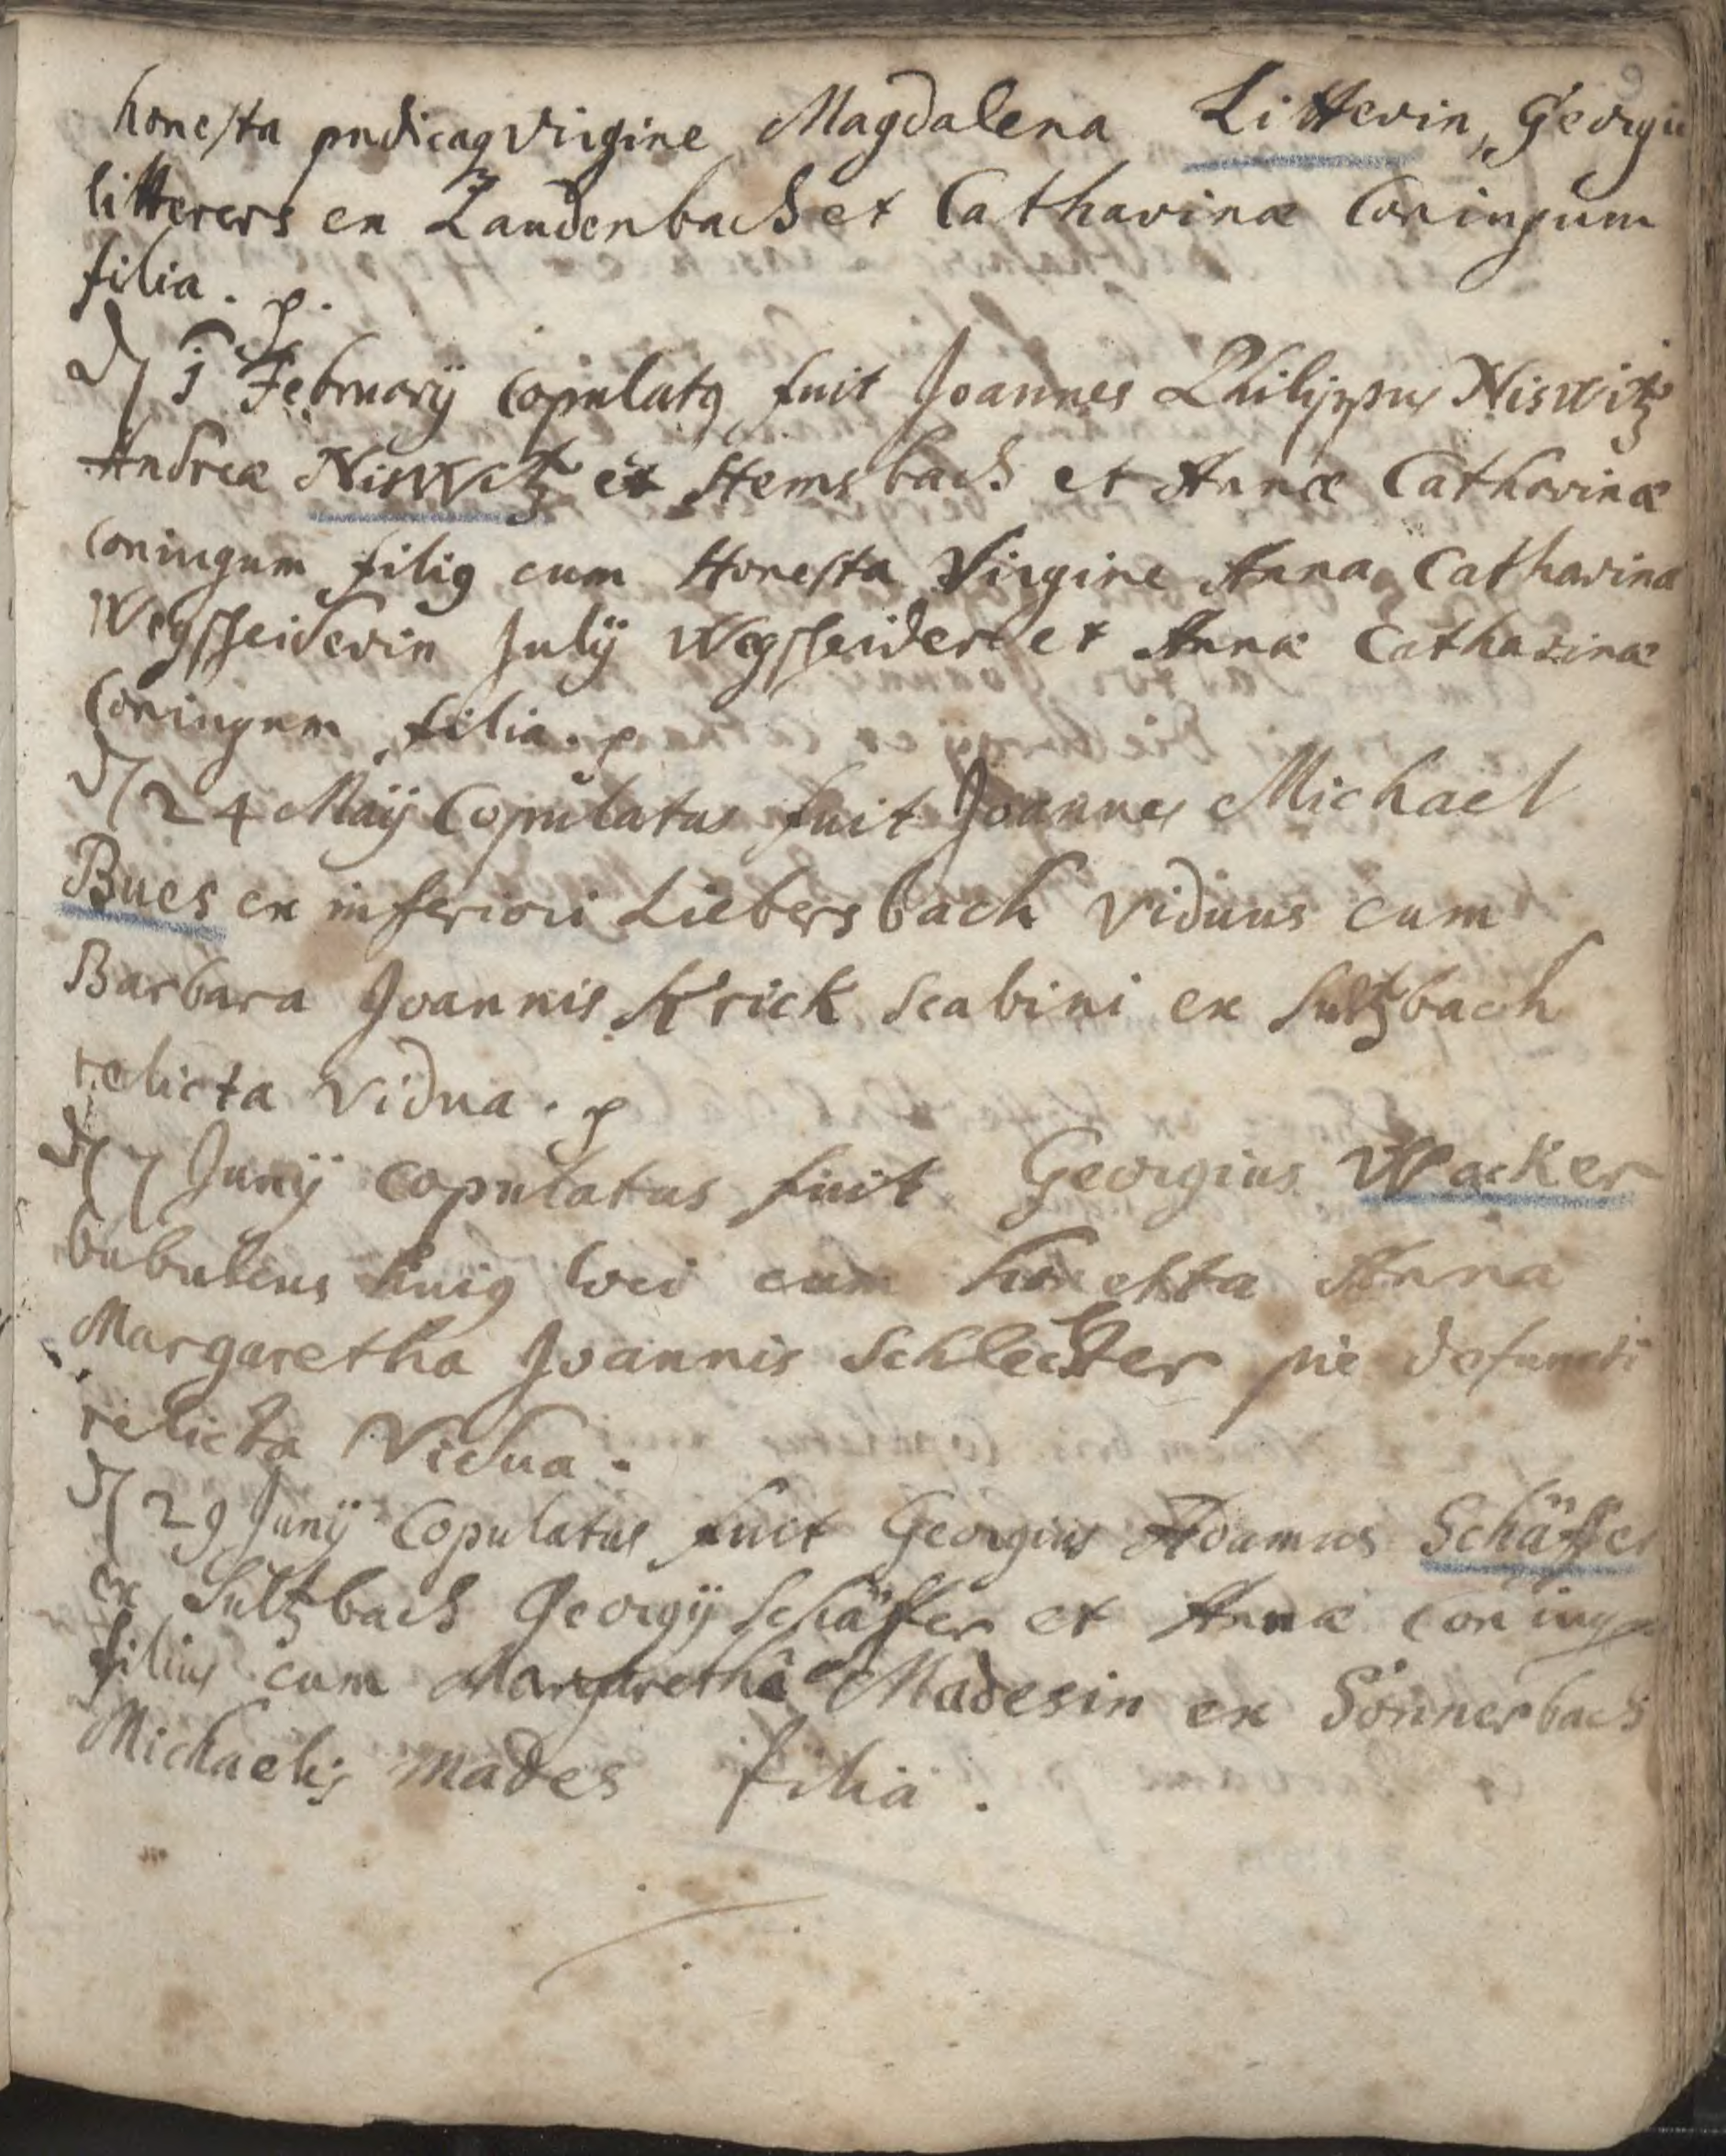 honesta pudicaq virgine Magdalena Litterin, Georgii
litterers ex Laudenbach et Catharinæ Coniugum
filia. p.
d 1 February copulatq fuit Joannes Philippus Niswitz
Andreæ Niswitz ex Hemsbach et Annæ Catharinæ
coniugum filiq cum Honesta Virgine Anna Catharina
Wegscheiderin July Wegscheider et Annæ Catharinæ
Coniugum filia. p
d 24 Maÿ Copulatus fuit Joannes Michael
Bues ex infferiori Liebersbach viduus cum
Barbara Joannis Krick Scabini ex Sultzbach
relicta vidua. p
d 7 Junÿ copulatus fuit Georgius Wacker
bubulcus huiq loci cum honesta Anna
Margaretha Joannis Schlechter pie defuncti
relicta Vidua.
d 29 Junÿ Copulatus fuit Georgius Adamus Schäffer
ex Sultzbach Georgÿ Schäffer et Annæ coniug
filius cum Margarethâ Madesin ex Sonnerbach
Michaelis Mades filia.